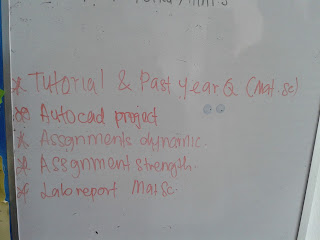 * Tutorial & Past year Q (Mat. Sc)
* Autocad project
* Assignments dynamic.
* Assgnment strength.
* Lab report Mat Sc.